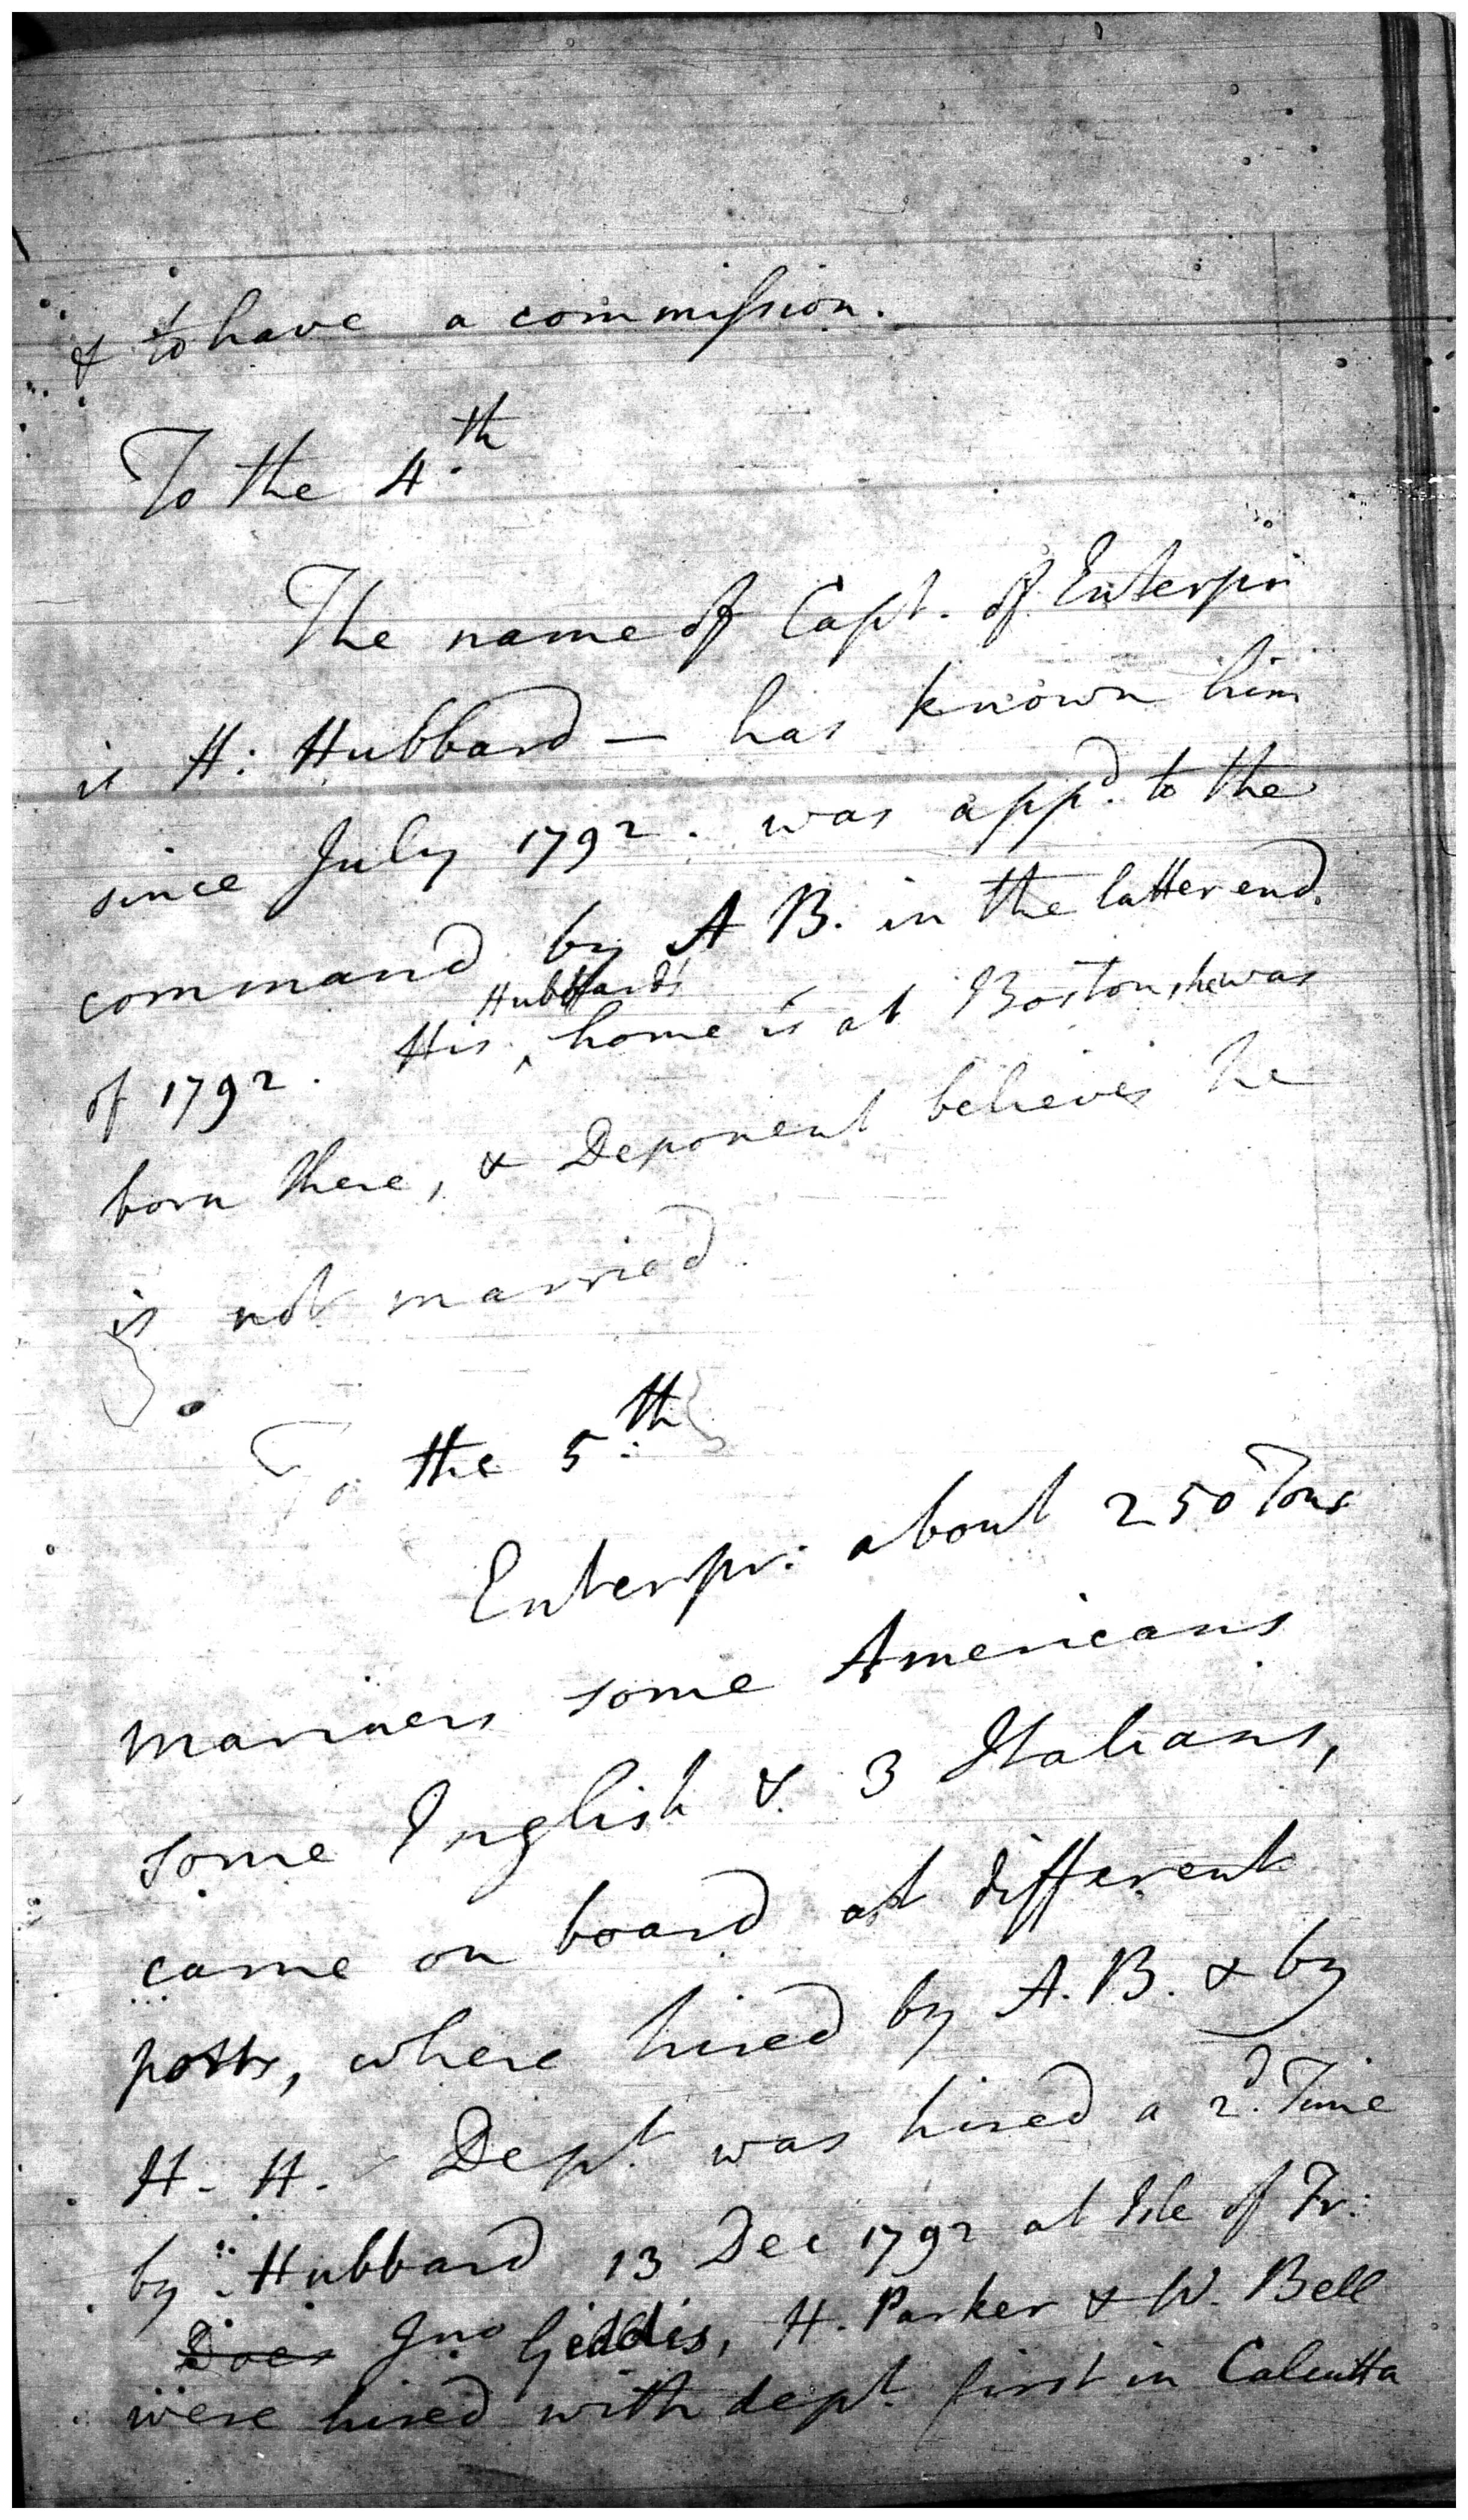 & to have a commission.
To the 4th
The name of Capt. of Enterpr
is H: Hubbard — has known him
since July 1792. was appd. to the
command by A B. in the latter end
of 1792. His Hubbard's home is at Boston, he was
born there, & Deponent believes he
is not married.
To the 5th
Enterpr: about 250 Tons
mariners some Americans
some English & 3 Italians,
came on board at different
ports, where hired by A. B. & by
H. H. Dept. was hired a 2d. Time
by Hubbard 13 Dec 1792 at Isle of Fr:
Does Jno Giddis, H. Parker & W. Bell
were hired with dept. first in Calcutta